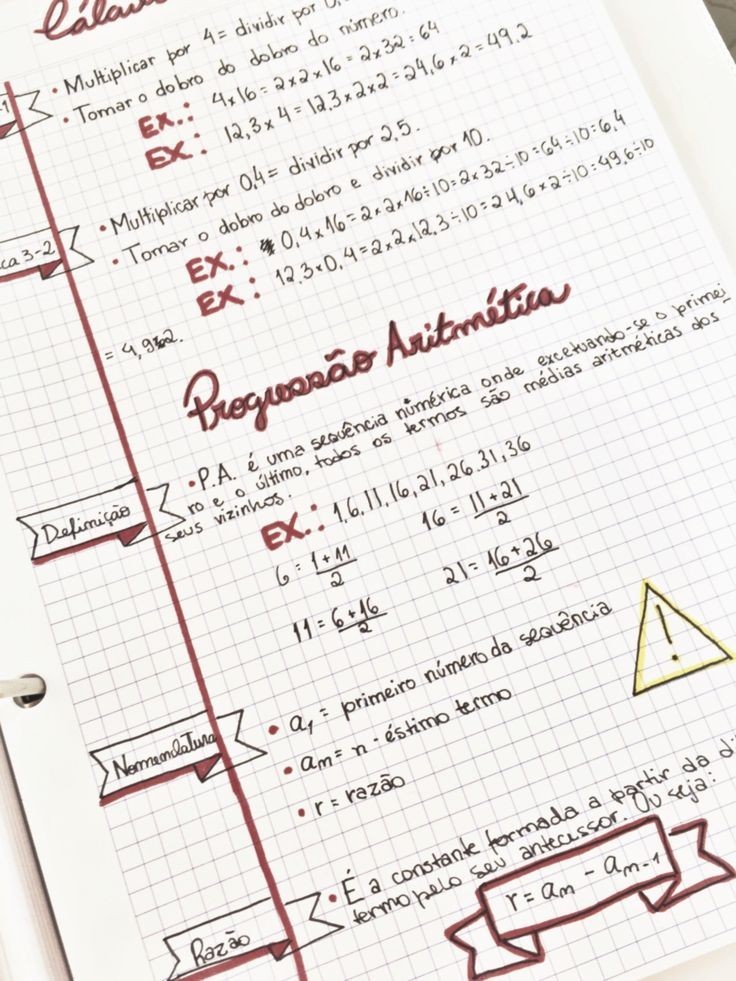 Multiplicar por 4 = dividir por 0,
• Tomar o dobro do dobro do número.
EX.: 4 x 16 = 2 x 2 x 16 = 2 x 32 = 64
EX.: 12,3 x 4 = 12,3 x 2 x 2 = 24,6 x 2 = 49,2
• Multiplicar por 0,4 = dividir por 2,5.
ca 3-2
• Tomar o dobro do dobro e dividir por 10.
EX.: 0,4 x 16 = 2 x 2 x 16 ÷ 10 = 2 x 32 ÷ 10 = 64 ÷ 10 = 6,4
EX.: 12,3 x 0,4 = 2 x 2 x 12,3 ÷ 10 = 24,6 x 2 ÷ 10 = 49,6 ÷ 10
= 4,962.
Progressão Aritmética
Definição
• P.A. é uma sequência númérica onde excetuando-se o primei
ro e o último, todos os termos são médias aritméticas dos
seus vizinhos.
EX.: 1, 6, 11, 16, 21, 26. 31, 36
6 = 1 + 11 / 2
16 = 11 + 21 / 2
11 = 6 + 16 / 2
21 = 16 + 26 / 2
!
Nomenclatura
• a1 = primeiro número da sequência
• am = n - éstimo termo
• r = razão
Razão
• É a constante formada a partir da di
termo pelo seu antecessor. Ou seja:
r = am - am-1